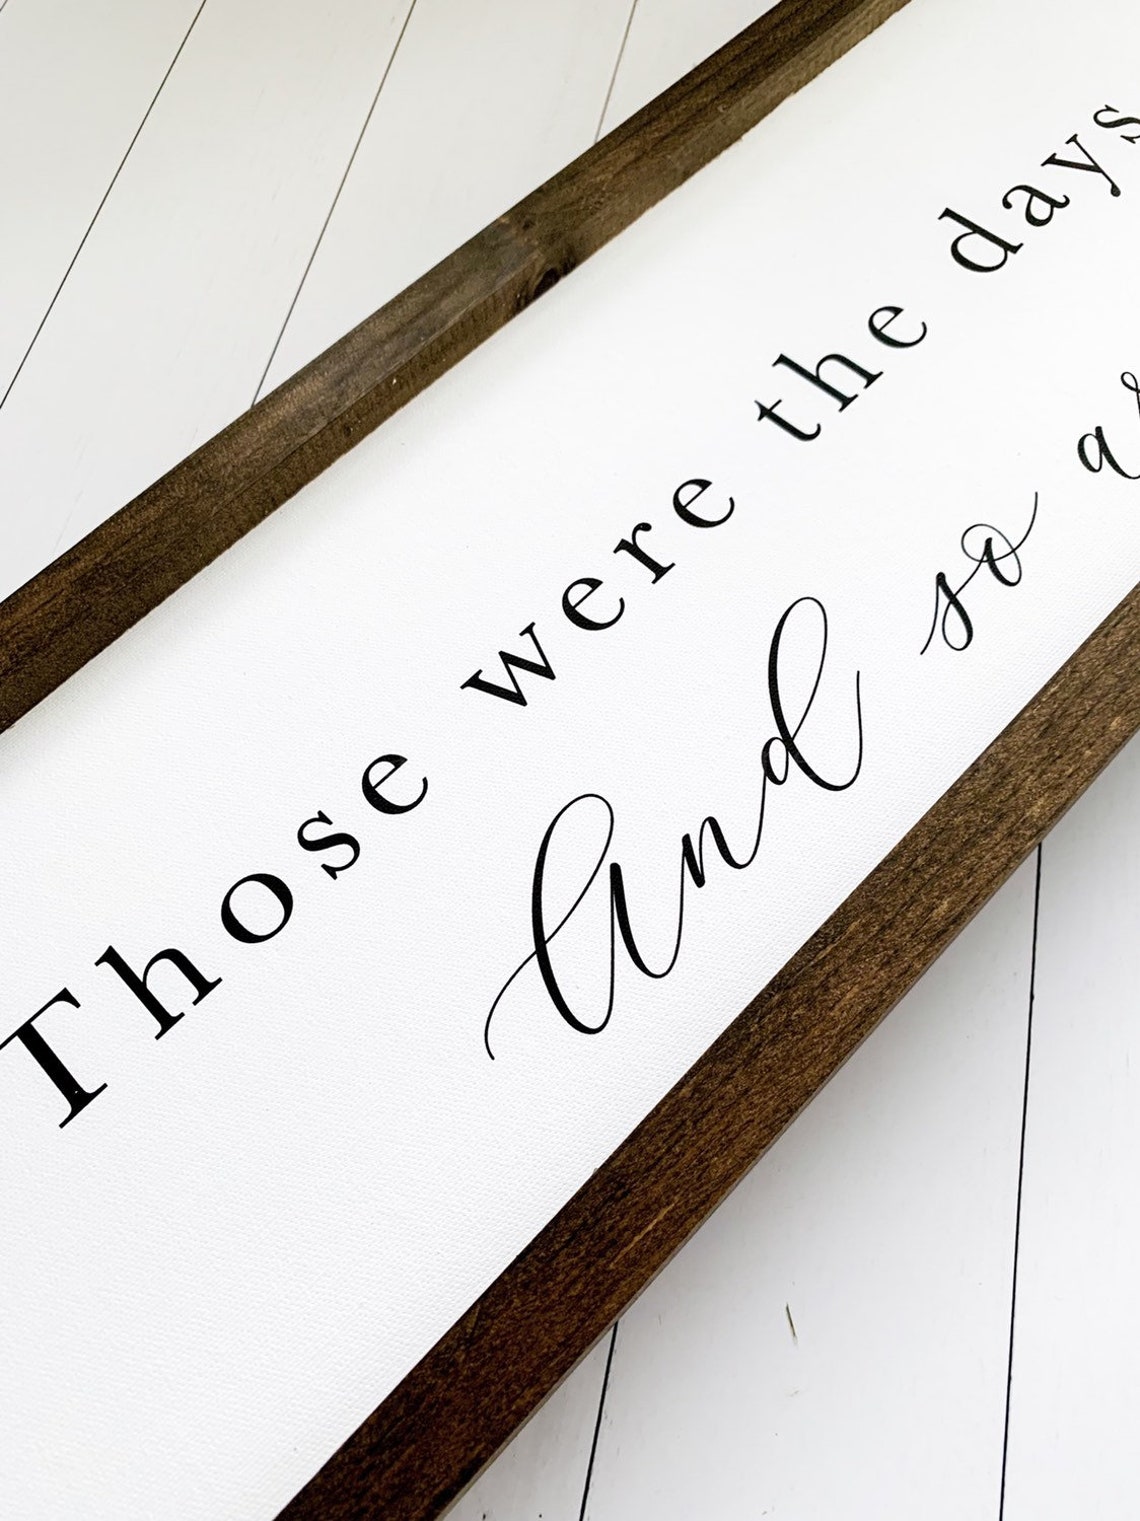 Those were the days
And so